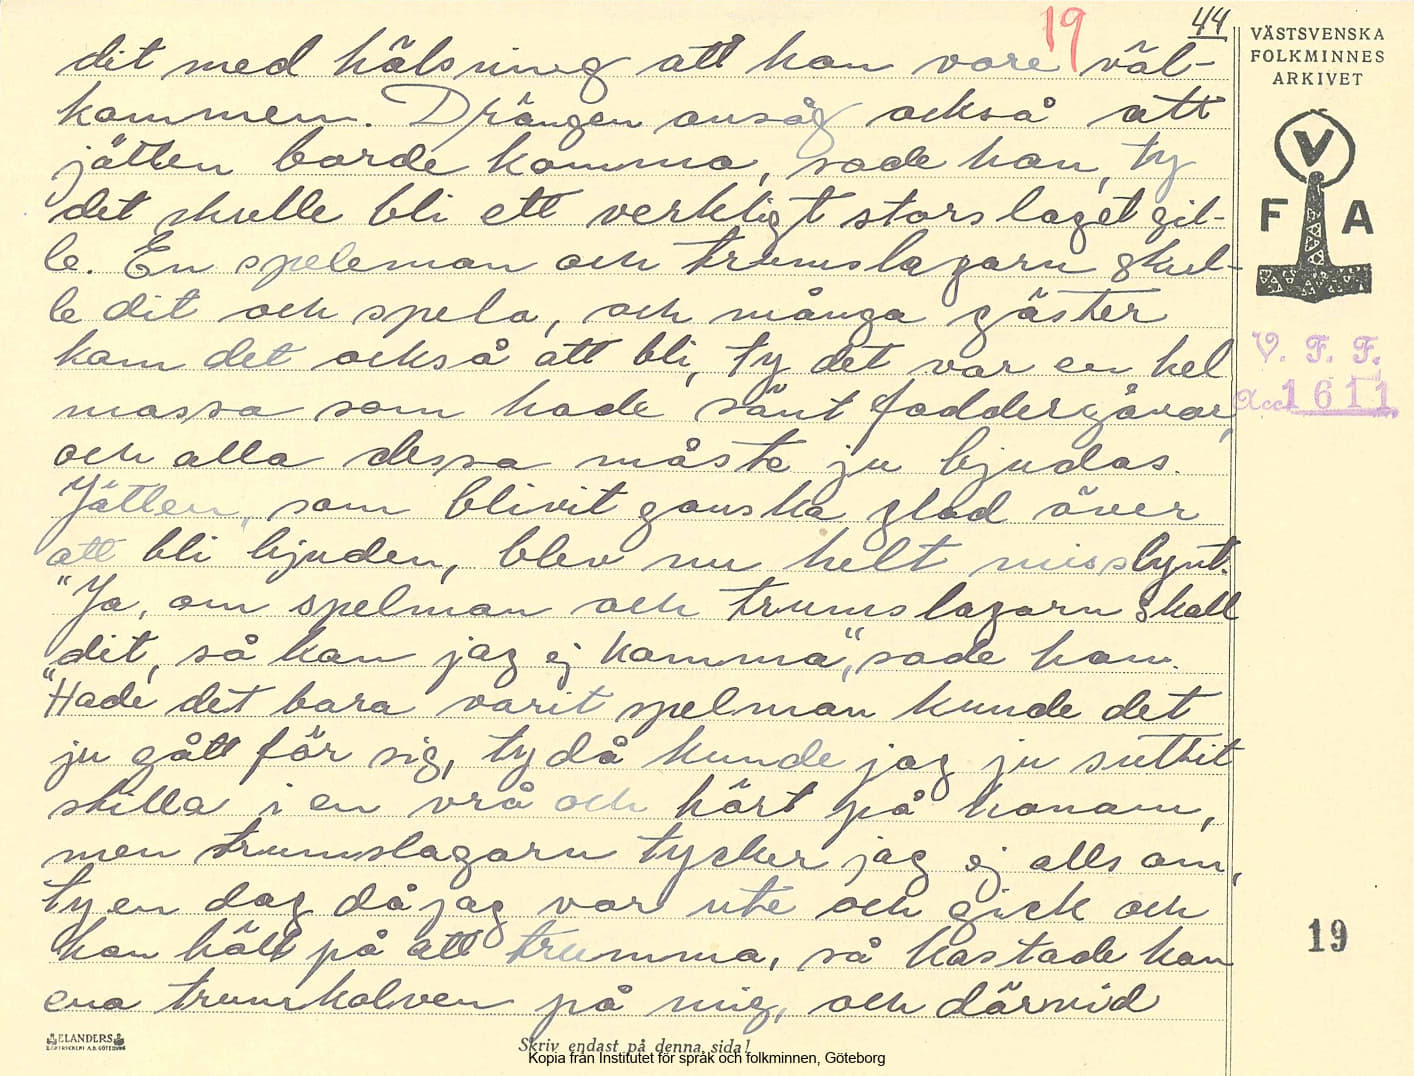 19
44
dit med hälsning att han vore väl-
kommen. Drängen ansåg också att
jätten borde komma, sade han, ty
det skulle bli ett verkligt storslaget gil-
le. En speleman och trumslagarn skul-
le dit och spela, och många gäster
kom det också att bli, ty det var en hel
massa som hade sänt faddergåvor,
och alla dessa måste ju bjudas.
Jätten, som blivit ganska glad över
att bli bjuden, blev nu helt misslynt.
"Ja, om spelman och trumslagarn skall
dit, så kan jag ej komma", sade han.
"Hade det bara varit spelman kunde det
ju gått för sig, ty då kunde jag ju suttit
stilla i en vrå och hört på honom,
men trumslagarn tycker jag ej alls om,
ty en dag då jag var ute och gick och
han höll på att trumma, så kastade han
ena trumkolven på mig, och därvid
VÄSTSVENSKA
FOLKMINNES
ARKIVET
V
F A
V. F. F.
Acc. 1611
19
ELANDERS
Skriv endast på denna sida!
Kopia från Institutet för språk och folkminnen, Göteborg